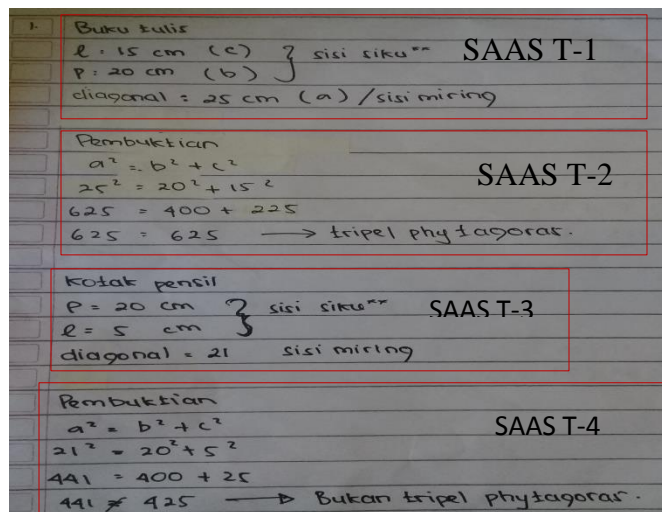 1. Buku tulis
l = 15 cm (c) } sisi siku"" SAAS T-1
p = 20 cm (b)
diagonal = 25 cm (a) / sisi miring
Pembuktian
a² = b² + c²
25² = 20² + 15² SAAS T-2
625 = 400 + 225
625 = 625 → tripel phytagoras.
Kotak pensil
P = 20 cm } sisi siku"" SAAS T-3
l = 5 cm
diagonal = 21 sisi miring
Pembuktian
a² = b² + c² SAAS T-4
21² = 20² + 5²
441 = 400 + 25
441 ≠ 425 → Bukan tripel phytagoras.